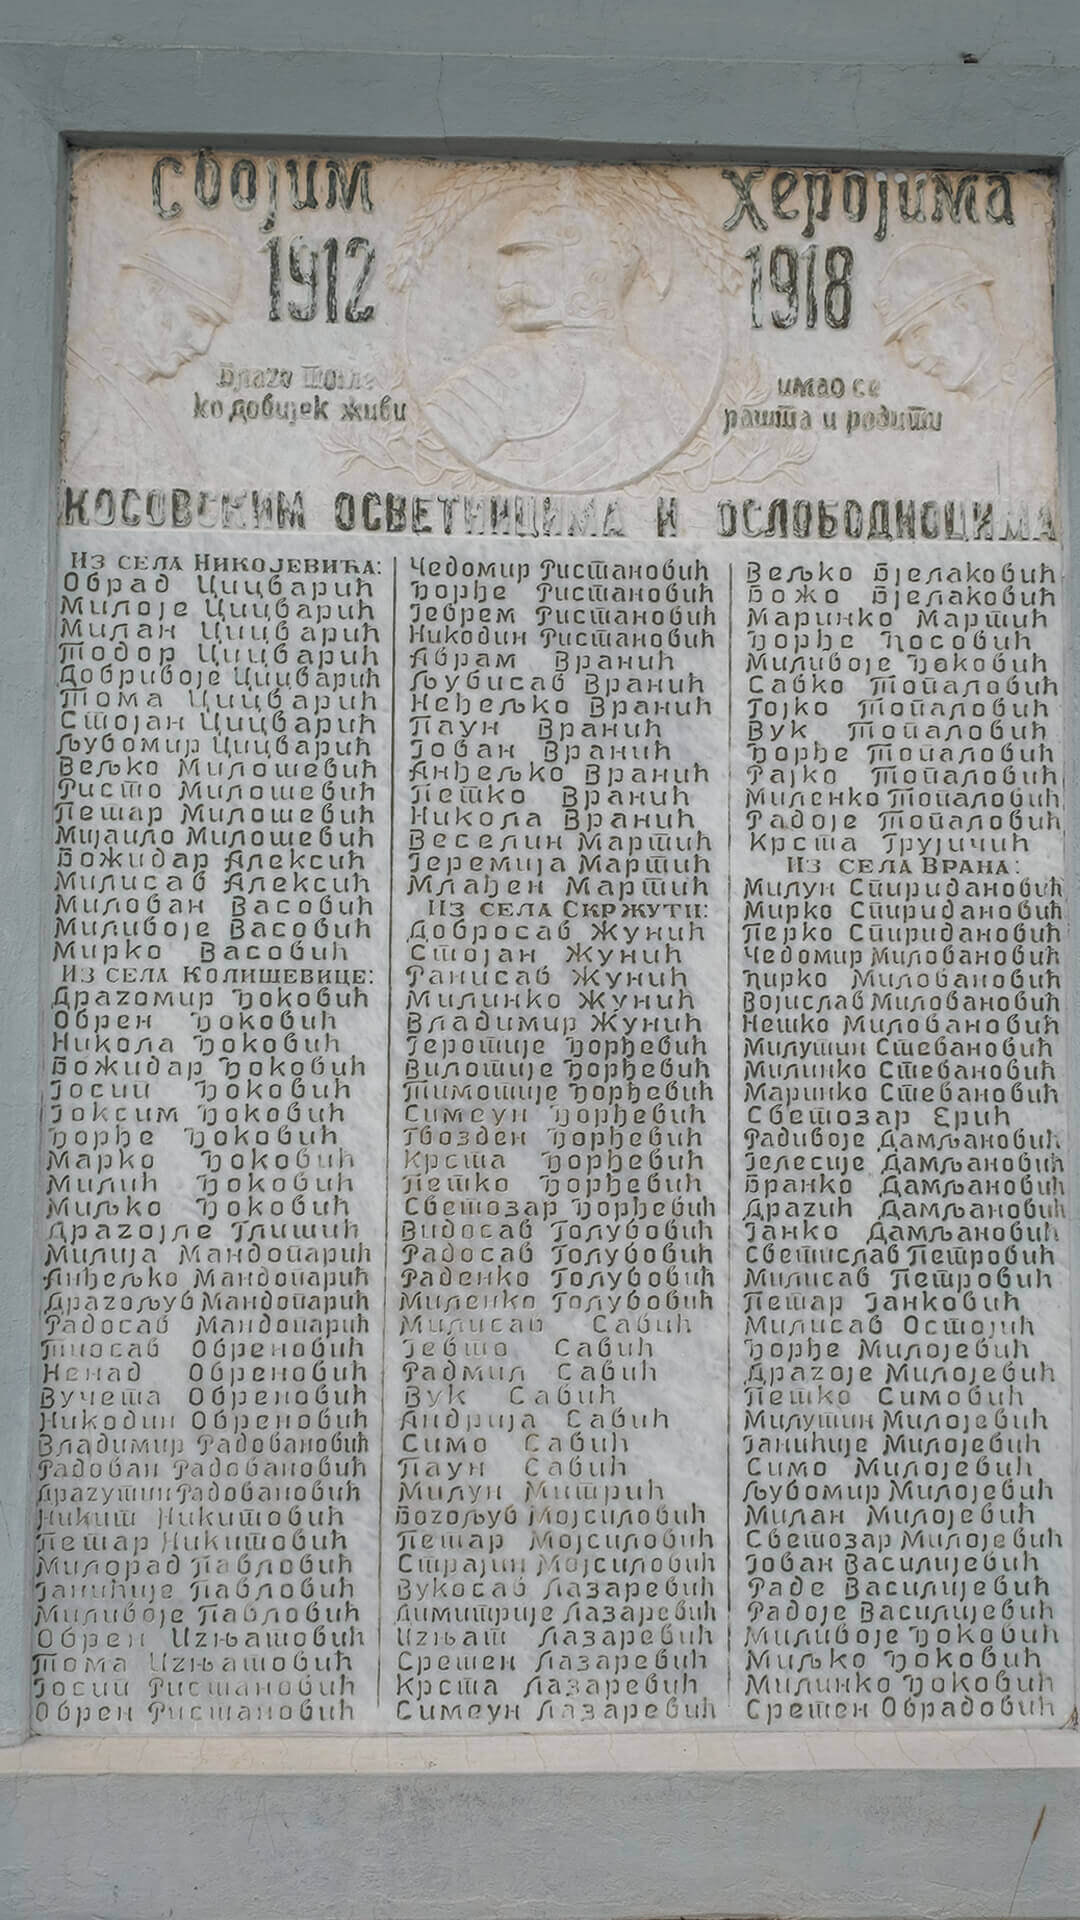 Својим Херојима
1912 1918
Благо
ко довијек живи
имао се
рашта и родити
КОСОВСКИМ ОСВЕТНИЦИМА И ОСЛОБОДИОЦИМА
Из села Никојевића:
Обрад Цицварић
Милоје Цицварић
Милан Цицварић
Тодор Цицварић
Добривоје Цицварић
Тома Цицварић
Стојан Цицварић
Љубомир Цицварић
Вељко Милошевић
Ристо Милошевић
Петар Милошевић
Мијаило Милошевић
Божидар Алексић
Милисав Алексић
Милован Васовић
Миливоје Васовић
Мирко Васовић
Из села Колишевице:
Драгомир Ђоковић
Обрен Ђоковић
Никола Ђоковић
Божидар Ђоковић
Јосип Ђоковић
Јоксим Ђоковић
Ђорђе Ђоковић
Марко Ђоковић
Милић Ђоковић
Миљко Ђоковић
Драгојле Глишић
Милија Мандопарић
Анђељко Мандопарић
Драгољуб Мандопарић
Радосав Мандопарић
Тиосав Обреновић
Ненад Обреновић
Вучета Обреновић
Никодин Обреновић
Владимир Радовановић
Радован Радовановић
Драгутин Радовановић
Никит Никитовић
Петар Никитовић
Милорад Павловић
Јанићије Павловић
Миливоје Павловић
Обрен Игњатовић
Тома Игњатовић
Јосип Ристановић
Обрен Ристановић
Чедомир Ристановић
Ђорђе Ристановић
Јеврем Ристановић
Никодин Ристановић
Аврам Вранић
Љубисав Вранић
Неђељко Вранић
Паун Вранић
Јован Вранић
Анђељко Вранић
Петко Вранић
Никола Вранић
Веселин Мартић
Јеремија Мартић
Млађен Мартић
Из села Скржути:
Добросав Жунић
Стојан Жунић
Ранисав Жунић
Милинко Жунић
Владимир Жунић
Јеротије Ђорђевић
Вилотије Ђорђевић
Тимотије Ђорђевић
Симеун Ђорђевић
Гвозден Ђорђевић
Крста Ђорђевић
Петко Ђорђевић
Светозар Ђорђевић
Видосав Голубовић
Радосав Голубовић
Раденко Голубовић
Миленко Голубовић
Милисав Савић
Јевто Савић
Радмил Савић
Вук Савић
Андрија Савић
Симо Савић
Паун Савић
Милун Митрић
Богољуб Мојсиловић
Петар Мојсиловић
Страјин Мојсиловић
Вукосав Лазаревић
Димитрије Лазаревић
Игњат Лазаревић
Сретен Лазаревић
Крста Лазаревић
Симеун Лазаревић
Вељко Бјелаковић
Божо Бјелаковић
Маринко Мартић
Ђорђе Ћосовић
Миливоје Ђоковић
Савко Топаловић
Гојко Топаловић
Вук Топаловић
Ђорђе Топаловић
Рајко Топаловић
Миленко Топаловић
Радоје Топаловић
Крста Грујичић
Из села Врана:
Милун Спиридановић
Мирко Спиридановић
Перко Спиридановић
Чедомир Миловановић
Ћирко Миловановић
Војислав Миловановић
Нешко Миловановић
Милутин Стевановић
Милинко Стевановић
Маринко Стевановић
Светозар Ерић
Радивоје Дамљановић
Јелесије Дамљановић
Бранко Дамљановић
Драгић Дамљановић
Јанко Дамљановић
Светислав Петровић
Милисав Петровић
Петар Јанковић
Милисав Остојић
Ђорђе Милојевић
Драгоје Милојевић
Петко Симовић
Милутин Милојевић
Јанићије Милојевић
Симо Милојевић
Љубомир Милојевић
Милан Милојевић
Светозар Милојевић
Јован Василијевић
Раде Василијевић
Радоје Василијевић
Миливоје Ђоковић
Миљко Ђоковић
Милинко Ђоковић
Сретен Обрадовић